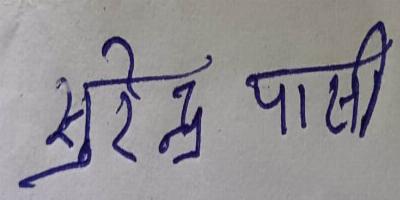 सुरेन्द्र पासी